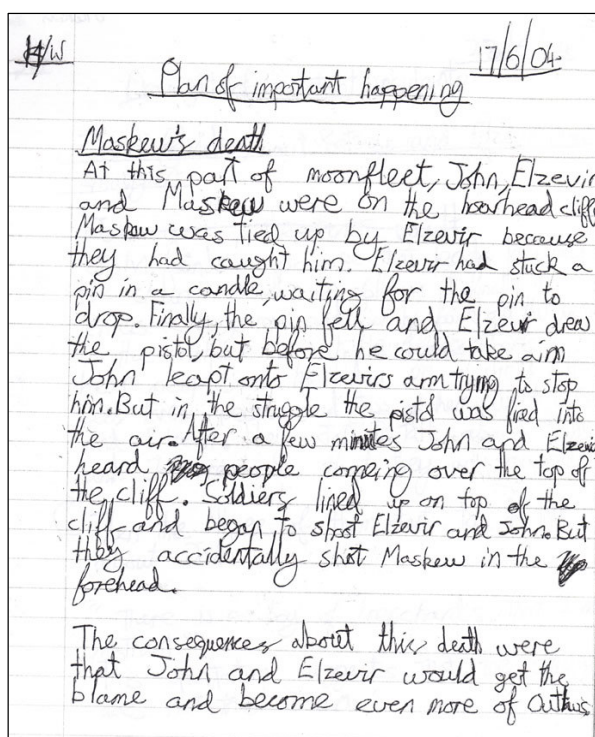 H/W
17/6/04
Plan of important happening
Maskew's death
At this part of moonfleet, John, Elzevir
and Maskew were on the hoarhead cliff
Maskew was tied up by Elzevir because
they had caught him. Elzevir had stuck a
pin in a candle, waiting for the pin to
drop. Finally, the pin fell and Elzevir drew
the pistol, but before he could take aim
John leapt onto Elzevirs arm trying to stop
him. But in the struggle the pistol was fired into
the air. After a few minutes John and Elzevir
heard people comeing over the top of
the cliff. Soldiers lined up on top of the
cliff and began to shoot Elzevir and John. But
they accidentally shot Maskew in the
forehead.
The consequences about this death were
that John and Elzevir would get the
blame and become even more of